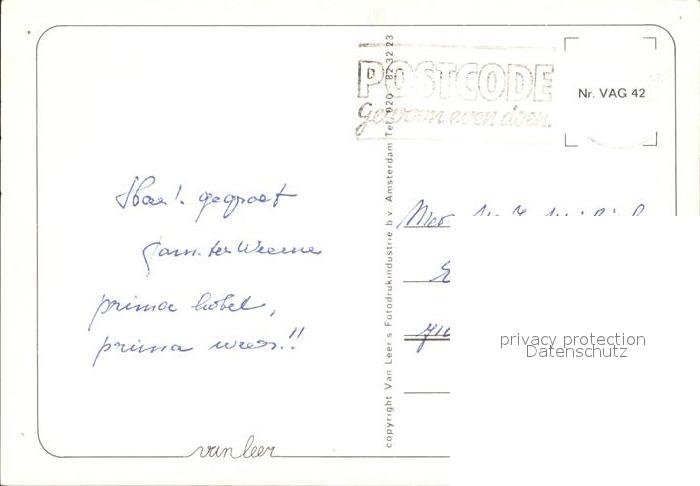 POSTCODE
gewoon even doen.
Nr. VAG 42
gegroet
prima hotel,
prima weer!!
copyright Van Leer's Fotodrukindustrie b.v. Amsterdam Tel. 020 - 82 32 23
privacy protection
Datenschutz
van leer